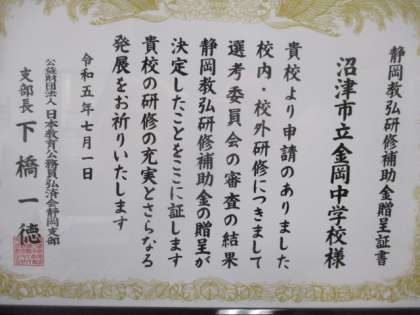 静岡教弘研修補助金贈呈証書
沼津市立金岡中学校様
貴校より申請のありました
校内・校外研修につきまして
選考委員会の審査の結果
静岡教弘研修補助金の贈呈が
決定したことをここに証します
貴校の研修の充実とさらなる
発展をお祈りいたします
令和五年七月一日
公益財団法人 日本教育公務員弘済会静岡支部
支部長 下橋一徳